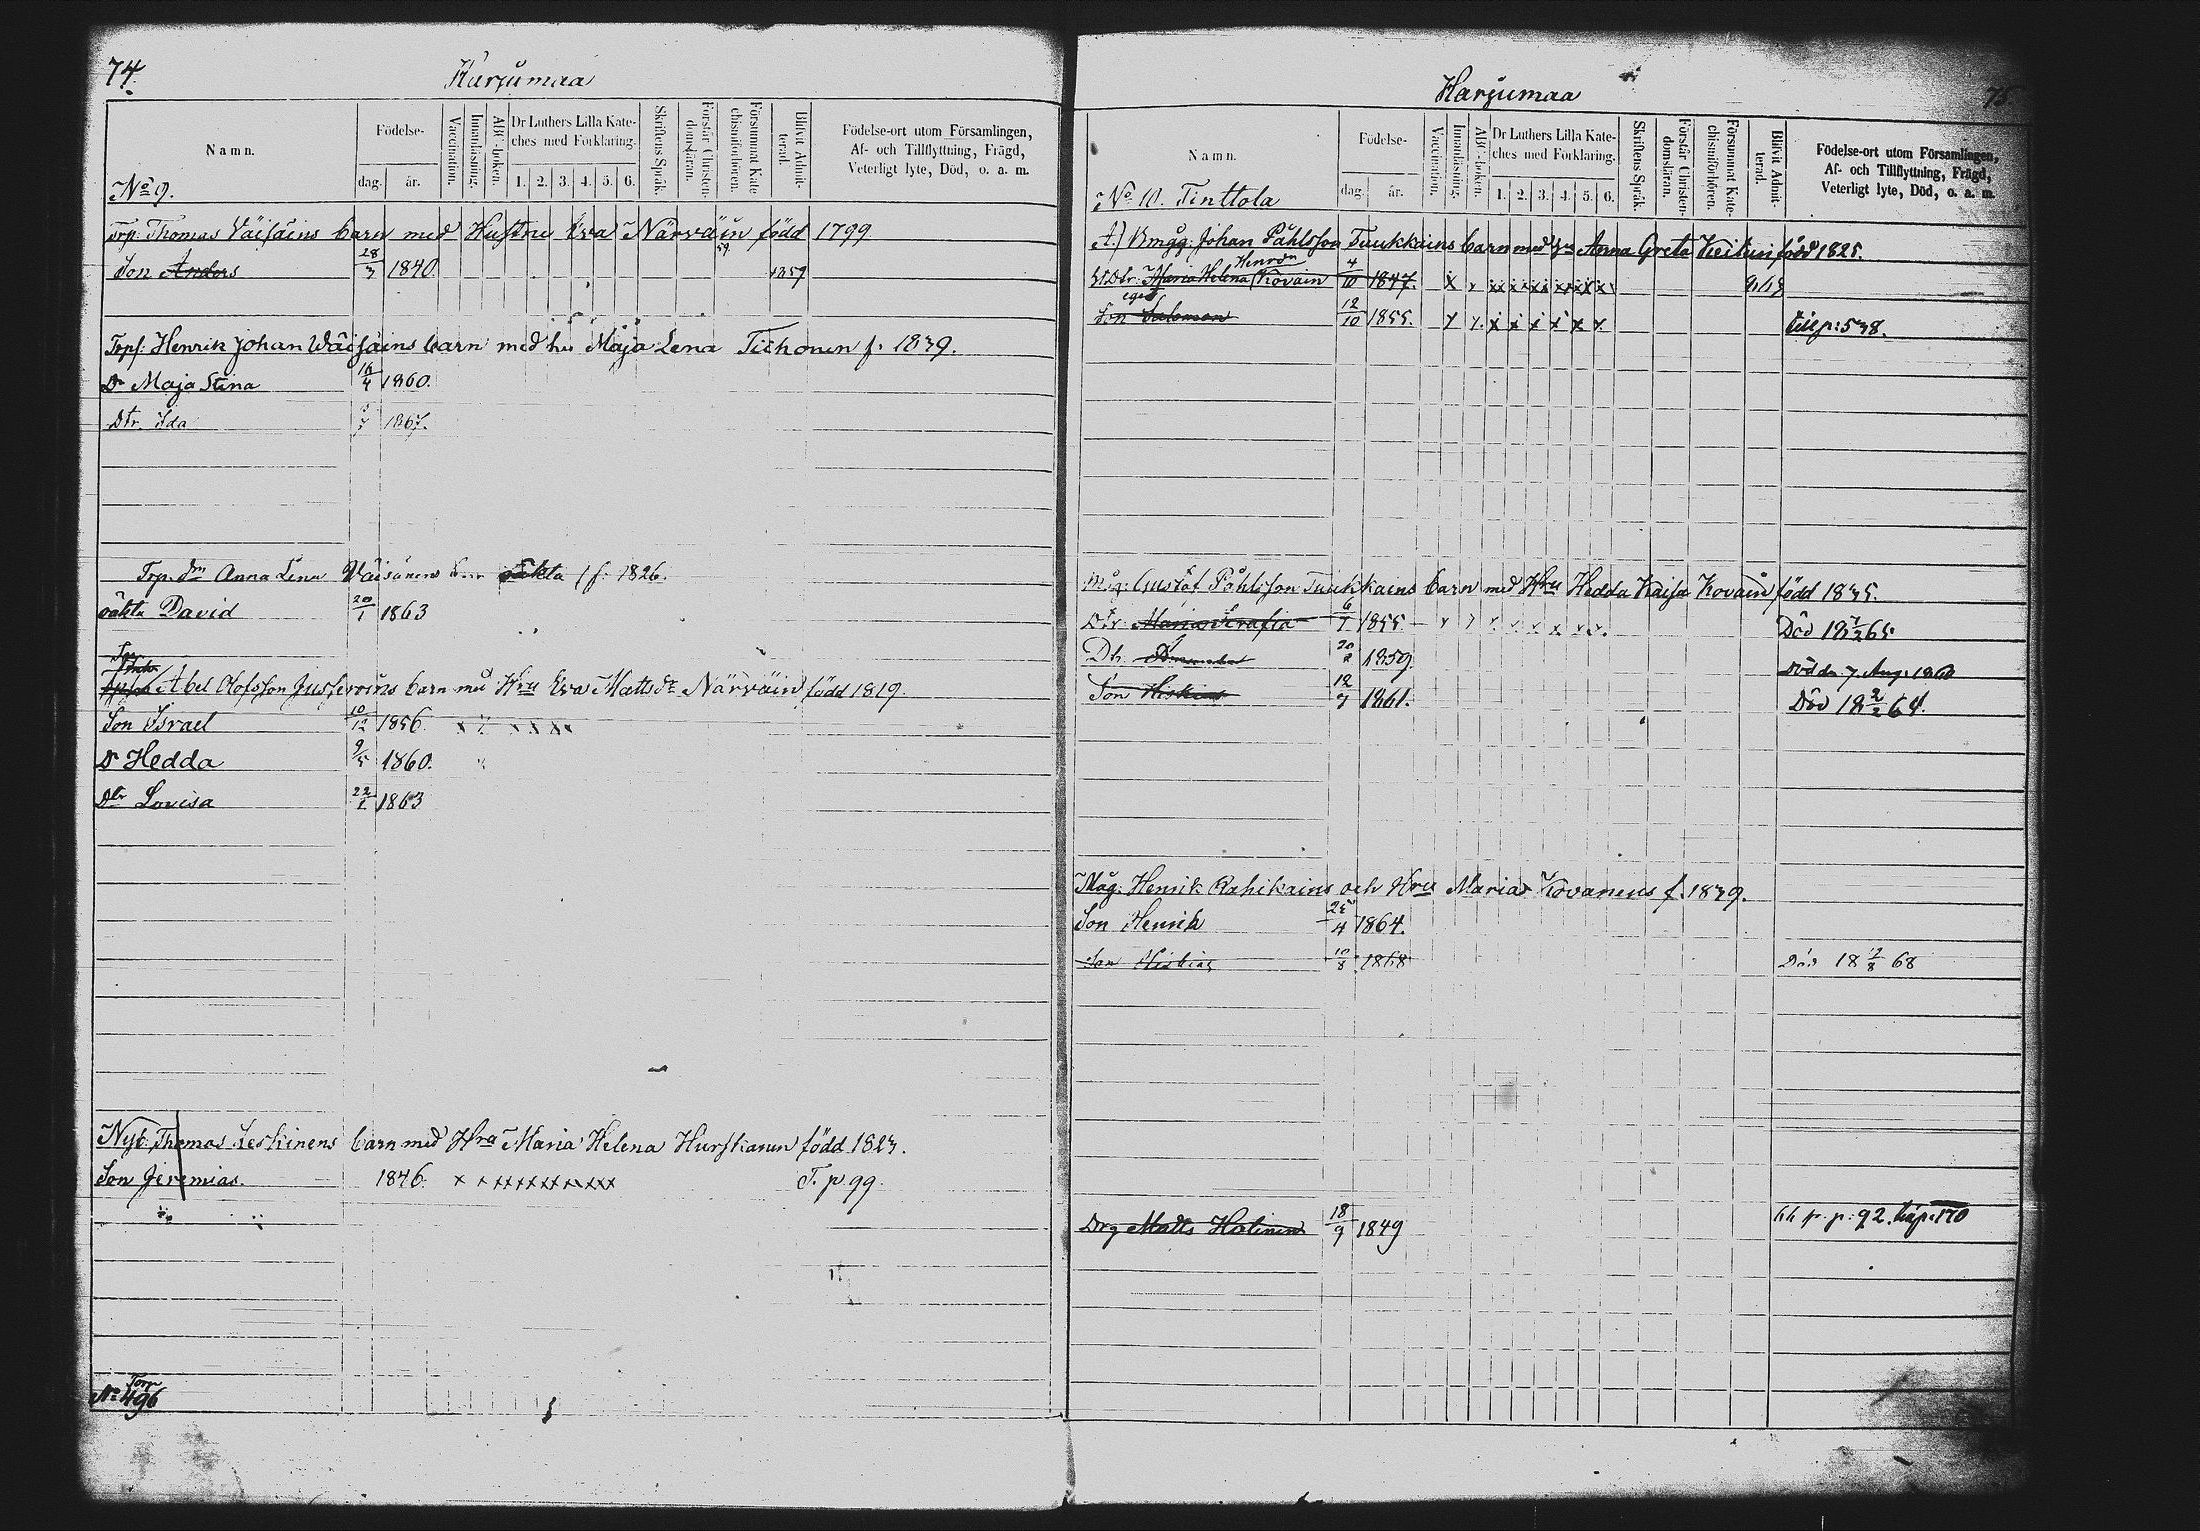 74.
Harjumaa
Namn.
Födelse-
dag.
år.
Vaccination.
Innanläsning.
ABC-boken.
Dr Luthers Lilla Kate-
ches med Förklaring.
1. 2. 3. 4. 5. 6.
Skriftens Språk.
Förstår Christen-
domsläran.
Försummat Kate-
chismiförhören.
Blifvit Admit-
terad.
Födelse-ort utom Församlingen,
Af- och Tillflyttning, Frägd,
Veterligt lyte, Död, o. a. m.
No 9.
Trp. Thomas Väisäins barn med Hustru Eva Närväin född 1799
Son Anders 28/3 1840. 59 1859
Trps: Henrik Johan Wäisäins barn med hu Maja Lena Tiihonen f. 1839.
Dr Maja Stina 16/4 1860.
Dtr. Ida 1867.
Trp. Dn Anna Lena Wäisänens oäkta f: 1826.
oäkta David 20/1 1863
Abel Olofsson Jusseroins barn med Hru Eva Mattsdr Närväin född 1819.
Son Israel 10/12 1856. x x x x x x
Dr Hedda 9/5 1860.
Dtr Lovisa 22/1 1863
Nyb: Thomas Leskinens barn med Hru Maria Helena Hurskanen född 1823.
Son Jeremias. 1846. x x x x x x x x x x x T. p 99.
Torp
No 496
Harjumaa
75
Namn.
Födelse-
dag.
år.
Vaccination.
Innanläsning.
ABC-boken.
Dr Luthers Lilla Kate-
ches med Förklaring.
1. 2. 3. 4. 5. 6.
Skriftens Språk.
Förstår Christen-
domsläran.
Försummat Kate-
chismiförhören.
Blifvit Admit-
terad.
Födelse-ort utom Församlingen,
Af- och Tillflyttning, Frägd,
Veterligt lyte, Död, o. a. m.
No 10. Tinttola
A) Johan Påhlsson Tuukkains barn med Anna Greta Keikin född 1825.
Maria Helena Kovain 4/10 1847.
Son Salomon 12/10 1855. x x x x x x x till p: 538.
Måg: Gustaf Påhlsson Tuukkains barn med Hru Hedda Kaisa Kovain född 1835.
Dtr: Maria Serafia 6/7 1855 Död 65
Dtr. 20 1859. Död d. 7 Aug. 1860
Son Hiskias 12/9 1861. Död 18 2/2 64.
Måg: Henrik Rahikains och Hru Maria Kovanens f. 1839.
Son Henrik 25/4 1864.
Son Hiskias 10/8 1868 Död 18 68
Drg Matts Halinen 18/9 1849 p. 92.